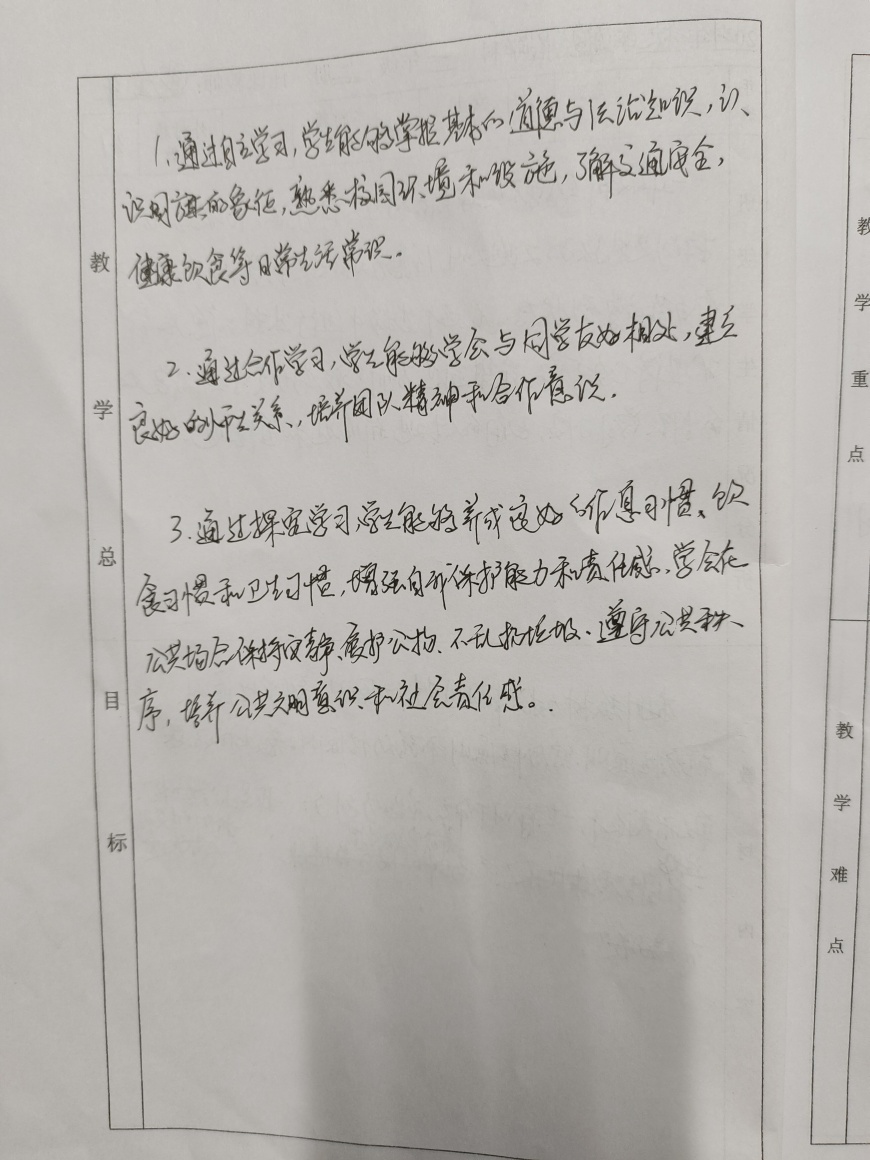 教学总目标
1.通过自主学习,学生能够掌握基本的道德与法治知识,认
识国旗的象征,熟悉校园环境和设施,了解交通安全,
健康饮食等日常生活常识。
2.通过合作学习,学生能够学会与同学友好相处,建立
良好的师生关系,培养团队精神和合作意识.
3.通过探究学习,学生能够养成良好的作息习惯、饮
食习惯和卫生习惯,增强自我保护能力和责任感、学会在
公共场合保持安静、爱护公物、不乱扔垃圾、遵守公共秩
序,培养公共文明意识和社会责任感。
教学重点
教学难点